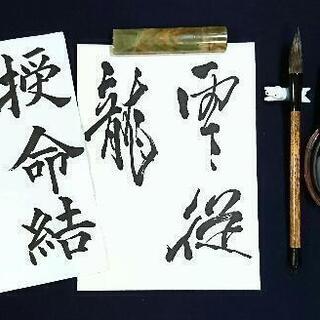 雲従
龍
授命結